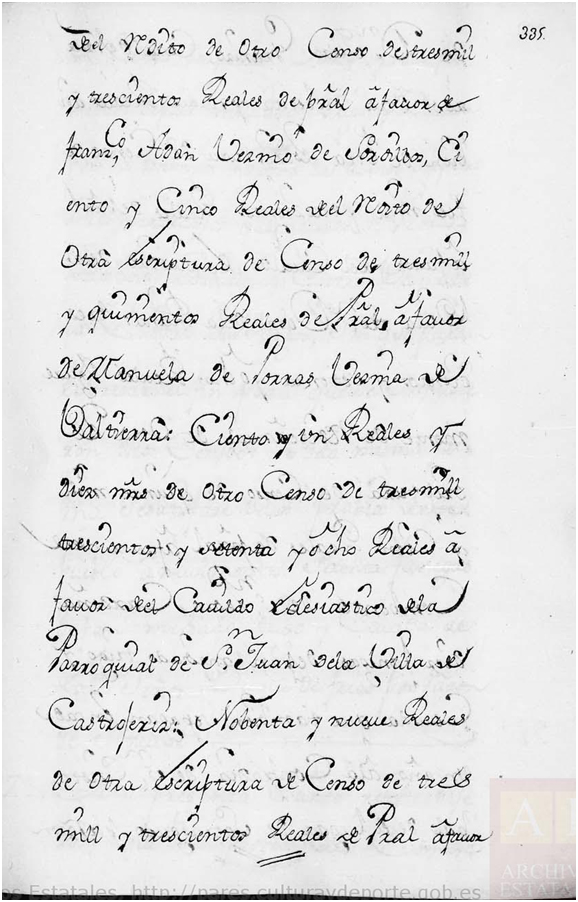 335.
del Rdito de Otro Censo de tresmil
y trescientos Reales de pral â favor de
franzco Adan Vezmo de Sordillos, Ci
ento y Cinco Reales del Rdito de
Otra escriptura de Censo de tresmill
y quinientos Reales de Pral, a favor
de Manuela de Porras Vezma de
Valtierra: Ciento y un Reales y
diez mrs de Otro Censo de tresmill
trescientos y setenta y ocho Reales â
favor del Cauildo eclesiastico dela
Parroquial de Sn Juan dela Villa de
Castroferiz: Nobenta y nueue Reales
de Otra escriptura de Censo de tres
mill y trescientos Reales de Pral a favor
A
ARCHIV
ESTATA
os Estatales. http://pares.culturaydeporte.gob.es